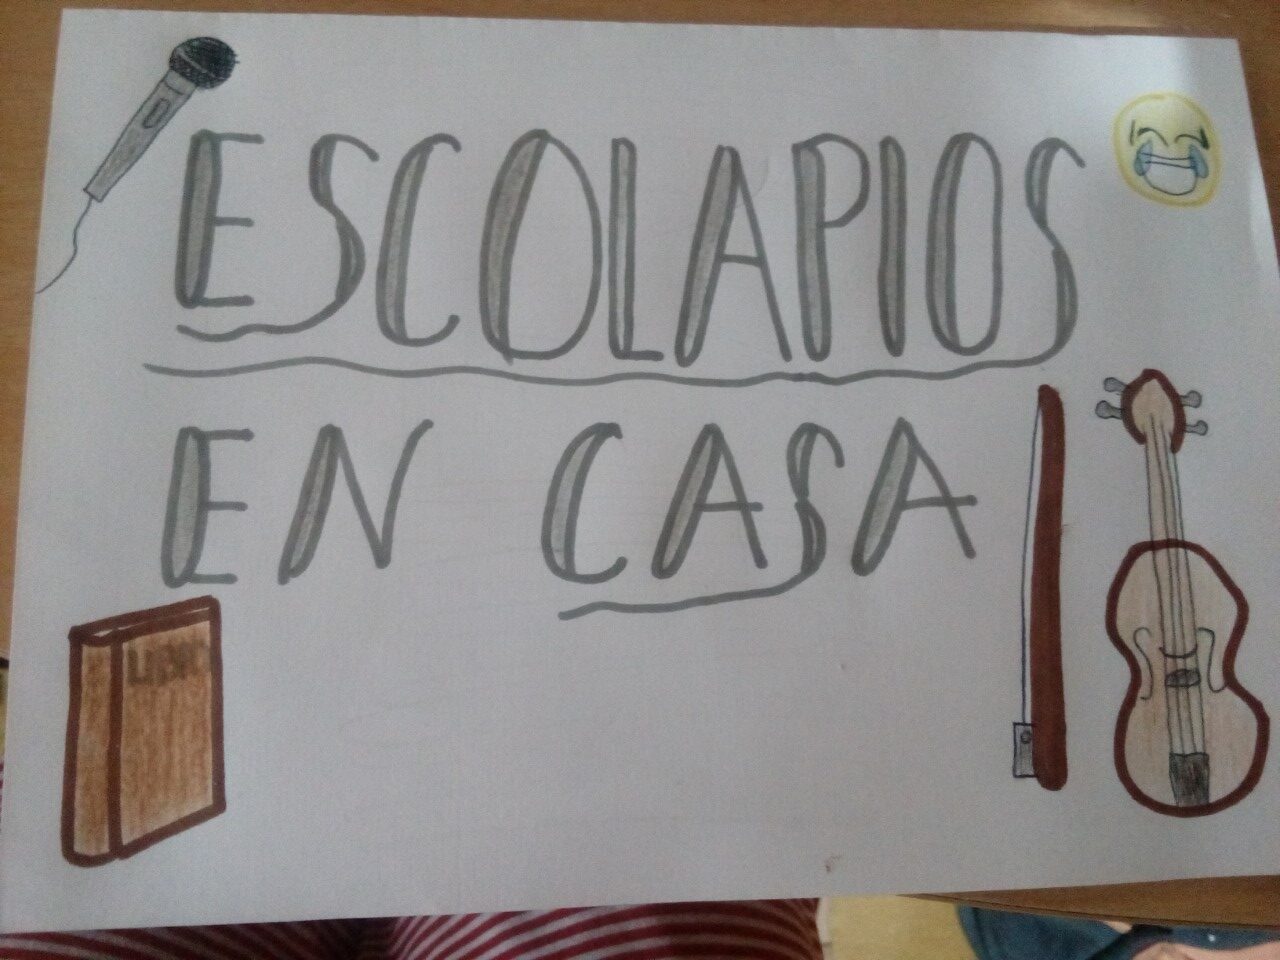 ESCOLAPIOS
EN CASA
LIBRO